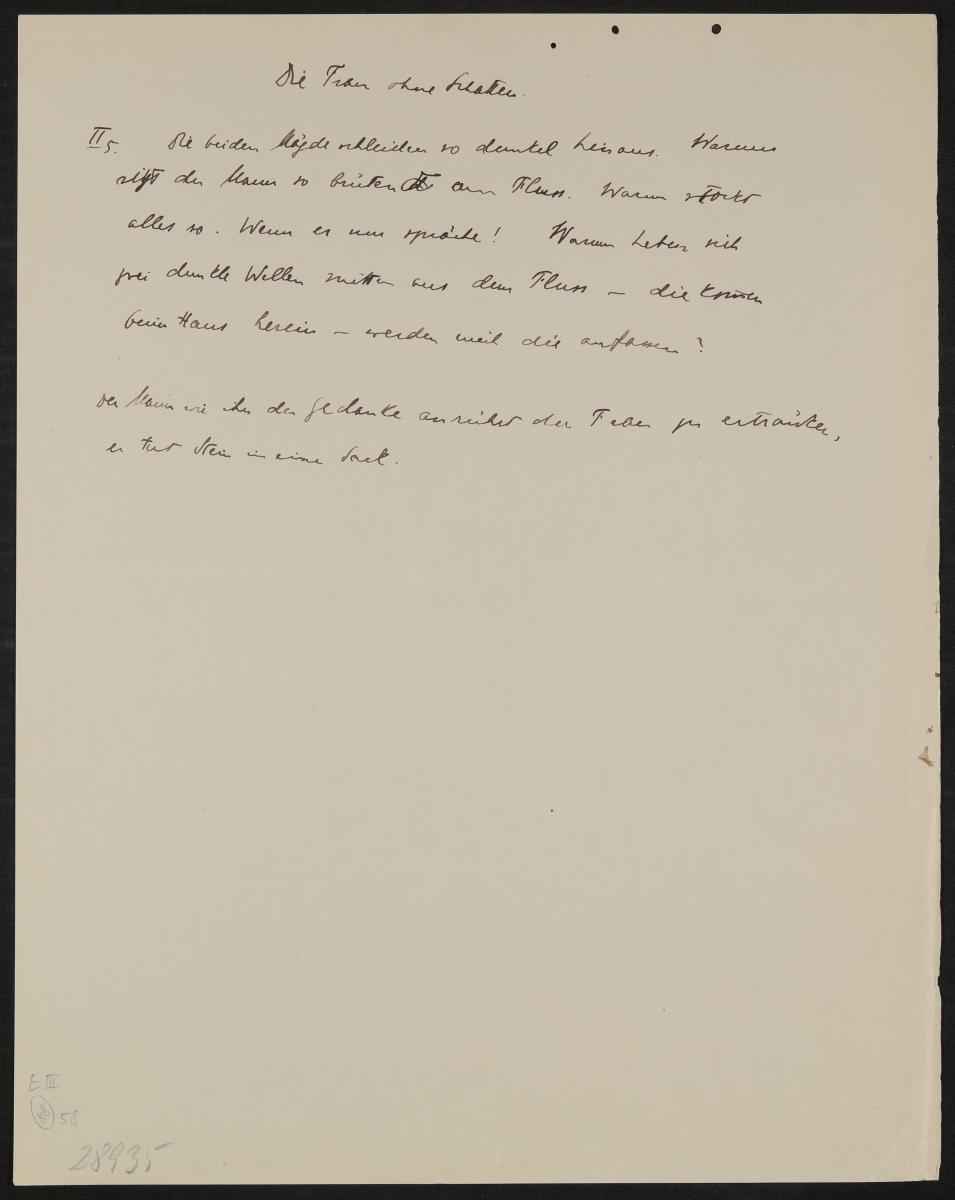 Die Frau ohne Schatten.
II 5. Die beiden Mägde schleichen so dunkel hinaus. Warum
sitzt der Mann so brütend am Fluss. Warum stockt
alles so. Wenn er nur spräche! Warum heben sich
zwei dunkle Wellen mitten aus dem Fluss – die kommen
beim Haus herein – werden mich die anfassen?
Der Mann wie ihn der Gedanke anrührt der Frau zu ertränken,
er tut Stein in einen Sack.
E III
88 58
28935